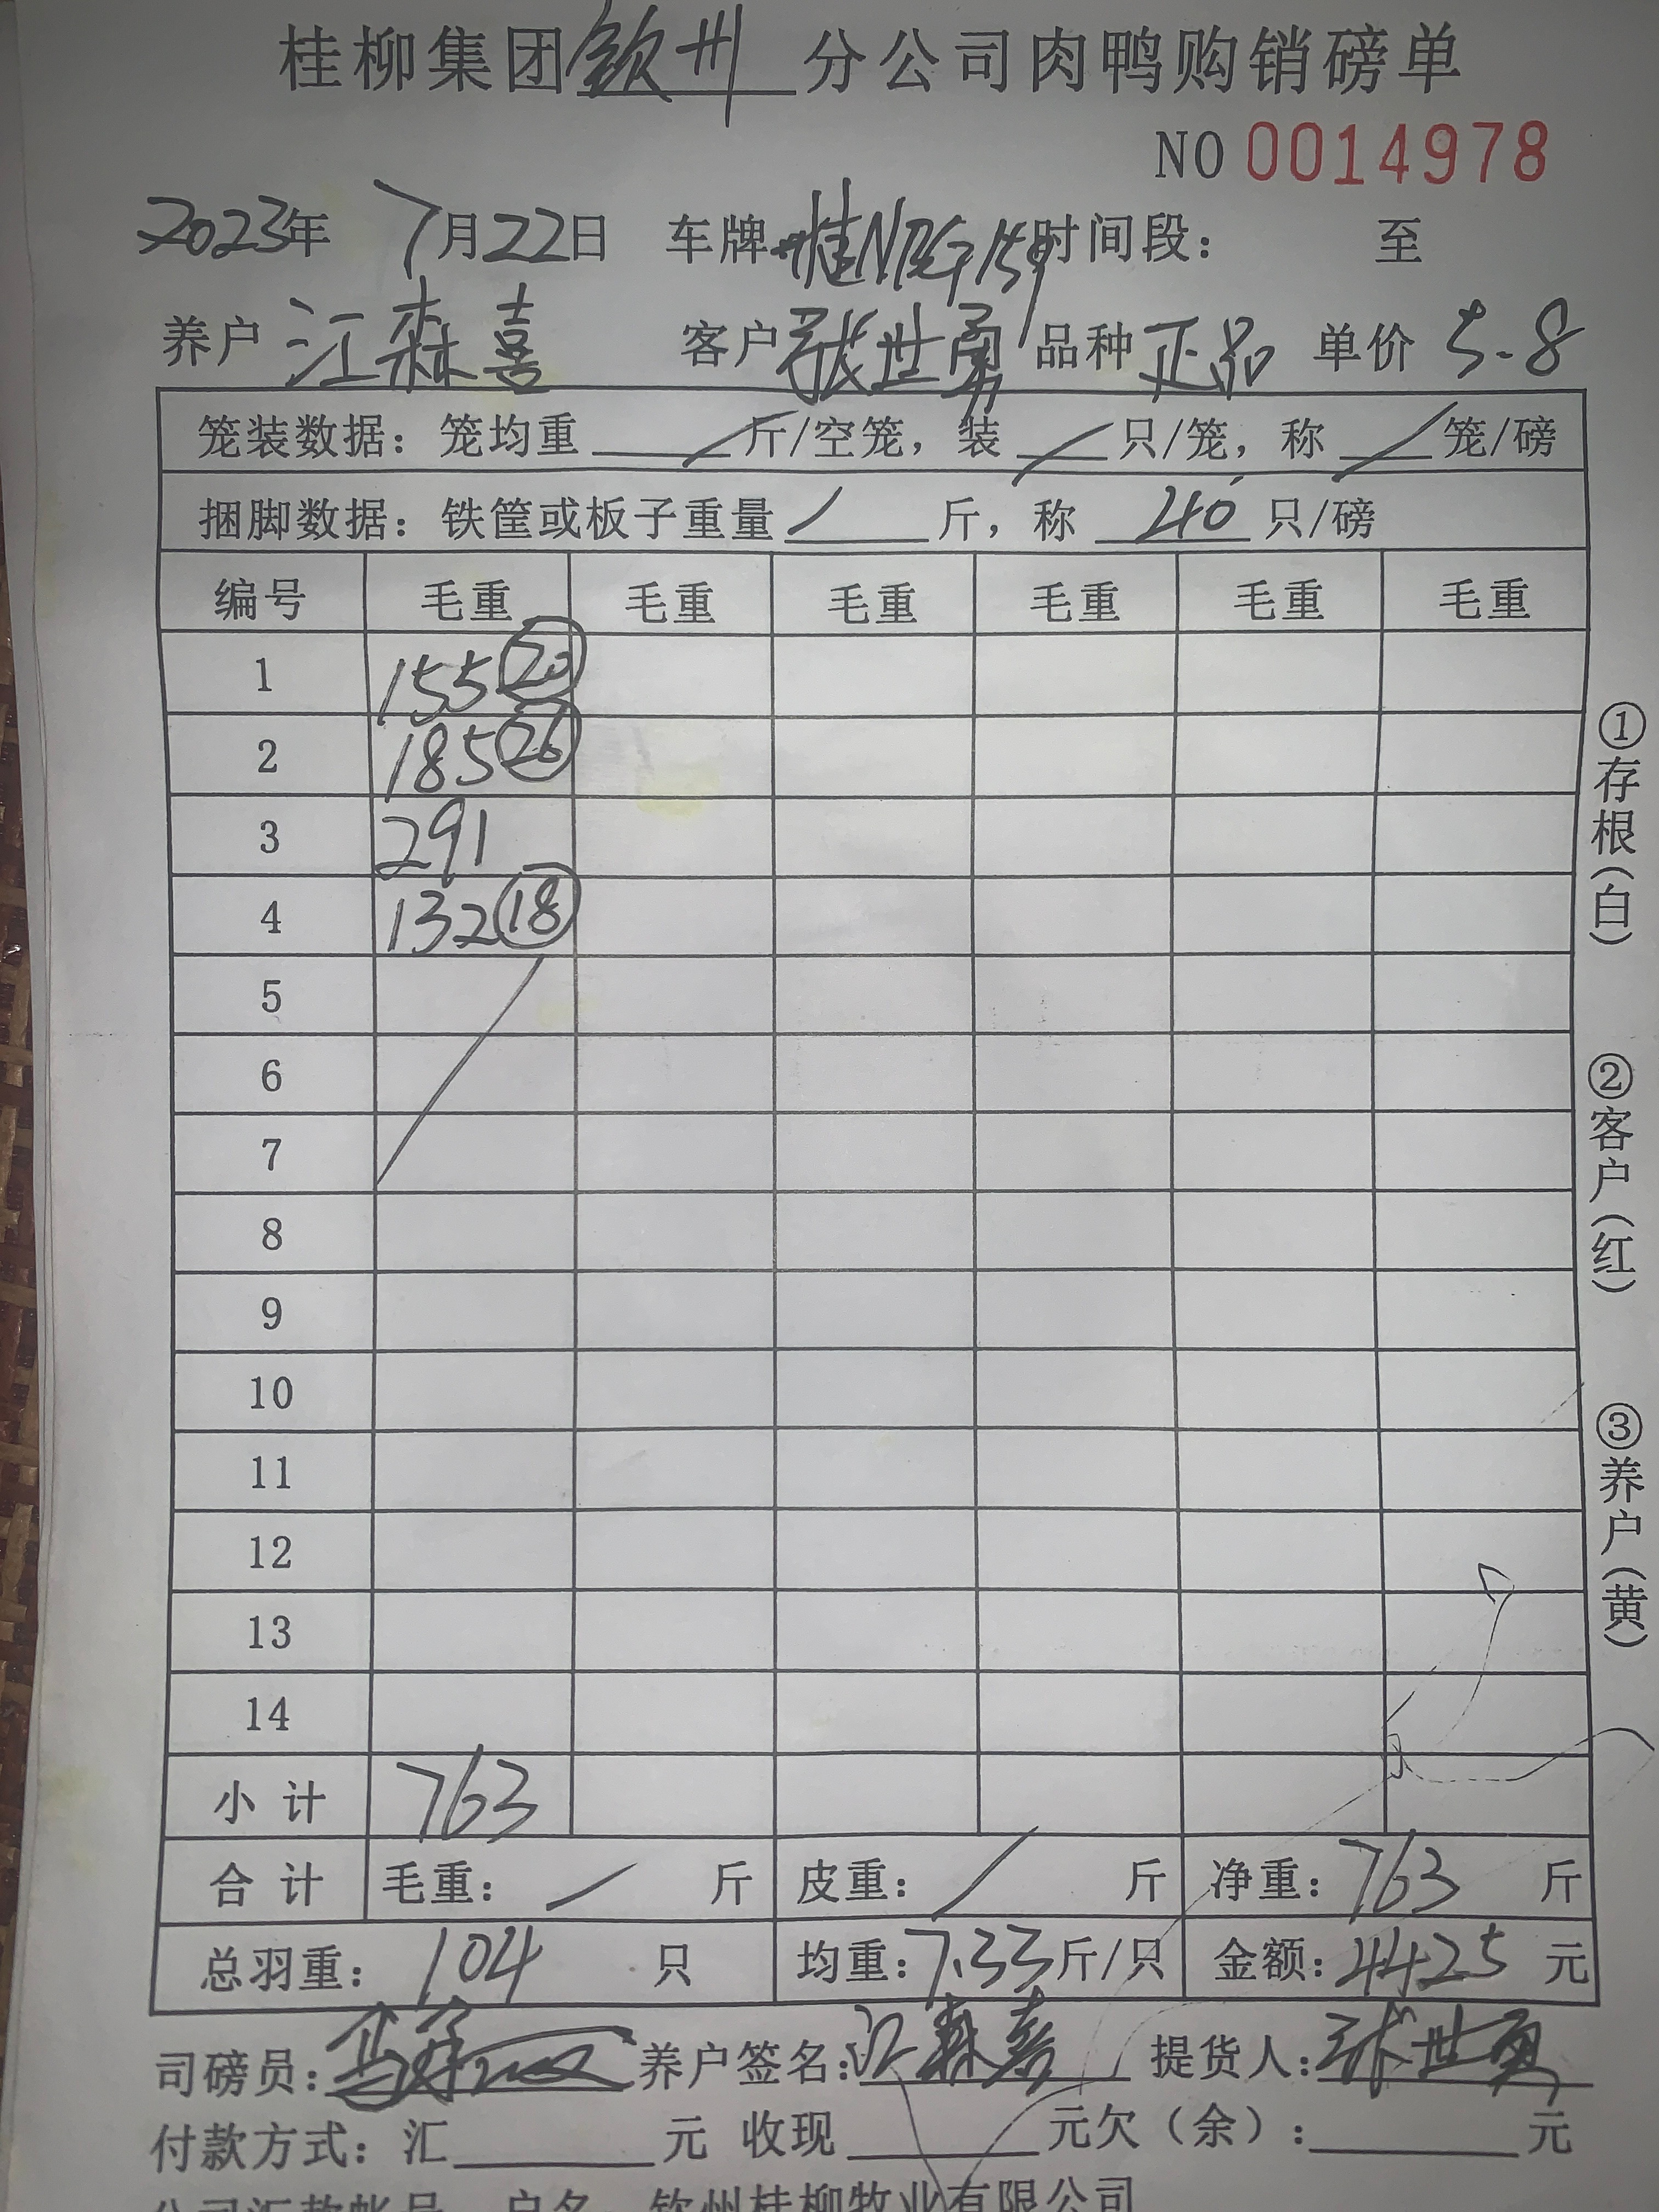 桂柳集团钦州分公司肉鸭购销磅单
NO 0014978
2023年 7月22日 车牌 桂N 时间段: 至
养户 江森喜 客户 张世勇 品种 正品 单价 5.8
笼装数据: 笼均重 / 斤/空笼, 装 / 只/笼, 称 / 笼/磅
捆脚数据: 铁筐或板子重量 / 斤, 称 40 只/磅
编号 毛重 毛重 毛重 毛重 毛重 毛重
1 155 ⑳
2 185 ㉖
3 291
4 132 ⑱
5
6
7
8
9
10
11
12
13
14
小计 763
合计 毛重: / 斤 皮重: / 斤 净重: 763 斤
总羽重: 104 只 均重: 7.33 斤/只 金额: 4425 元
司磅员: 养户签名: 江森喜 提货人: 张世勇
付款方式: 汇 元 收现 元欠(余): 元
公司汇款帐号 户名 钦州桂柳牧业有限公司
①存根(白)
②客户(红)
③养户(黄)